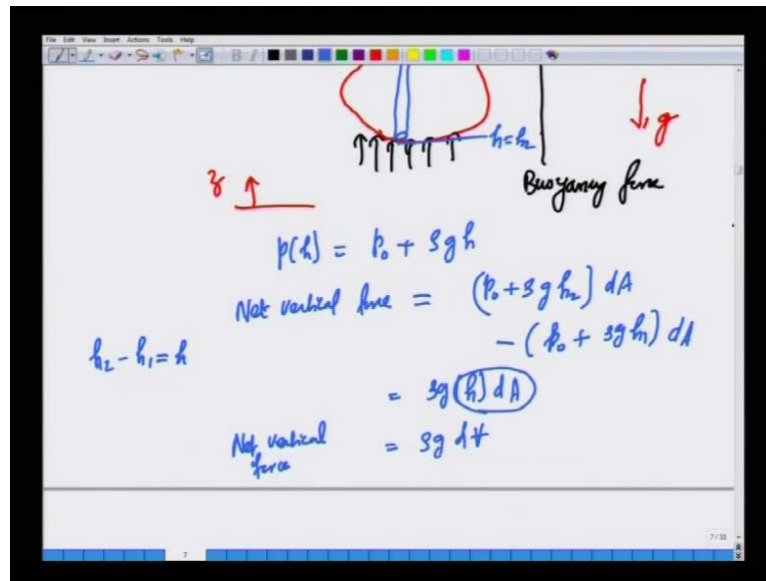 File Edit View Insert Actions Tools Help
g
h=h₂
Buoyancy force
z
p(h) = p₀ + ρgh
Net vertical force = (p₀+ρgh₂) dA
- (p₀ + ρgh₁) dA
h₂ - h₁ = h
= ρg(h) dA
Net vertical force = ρg dV
7/33
7